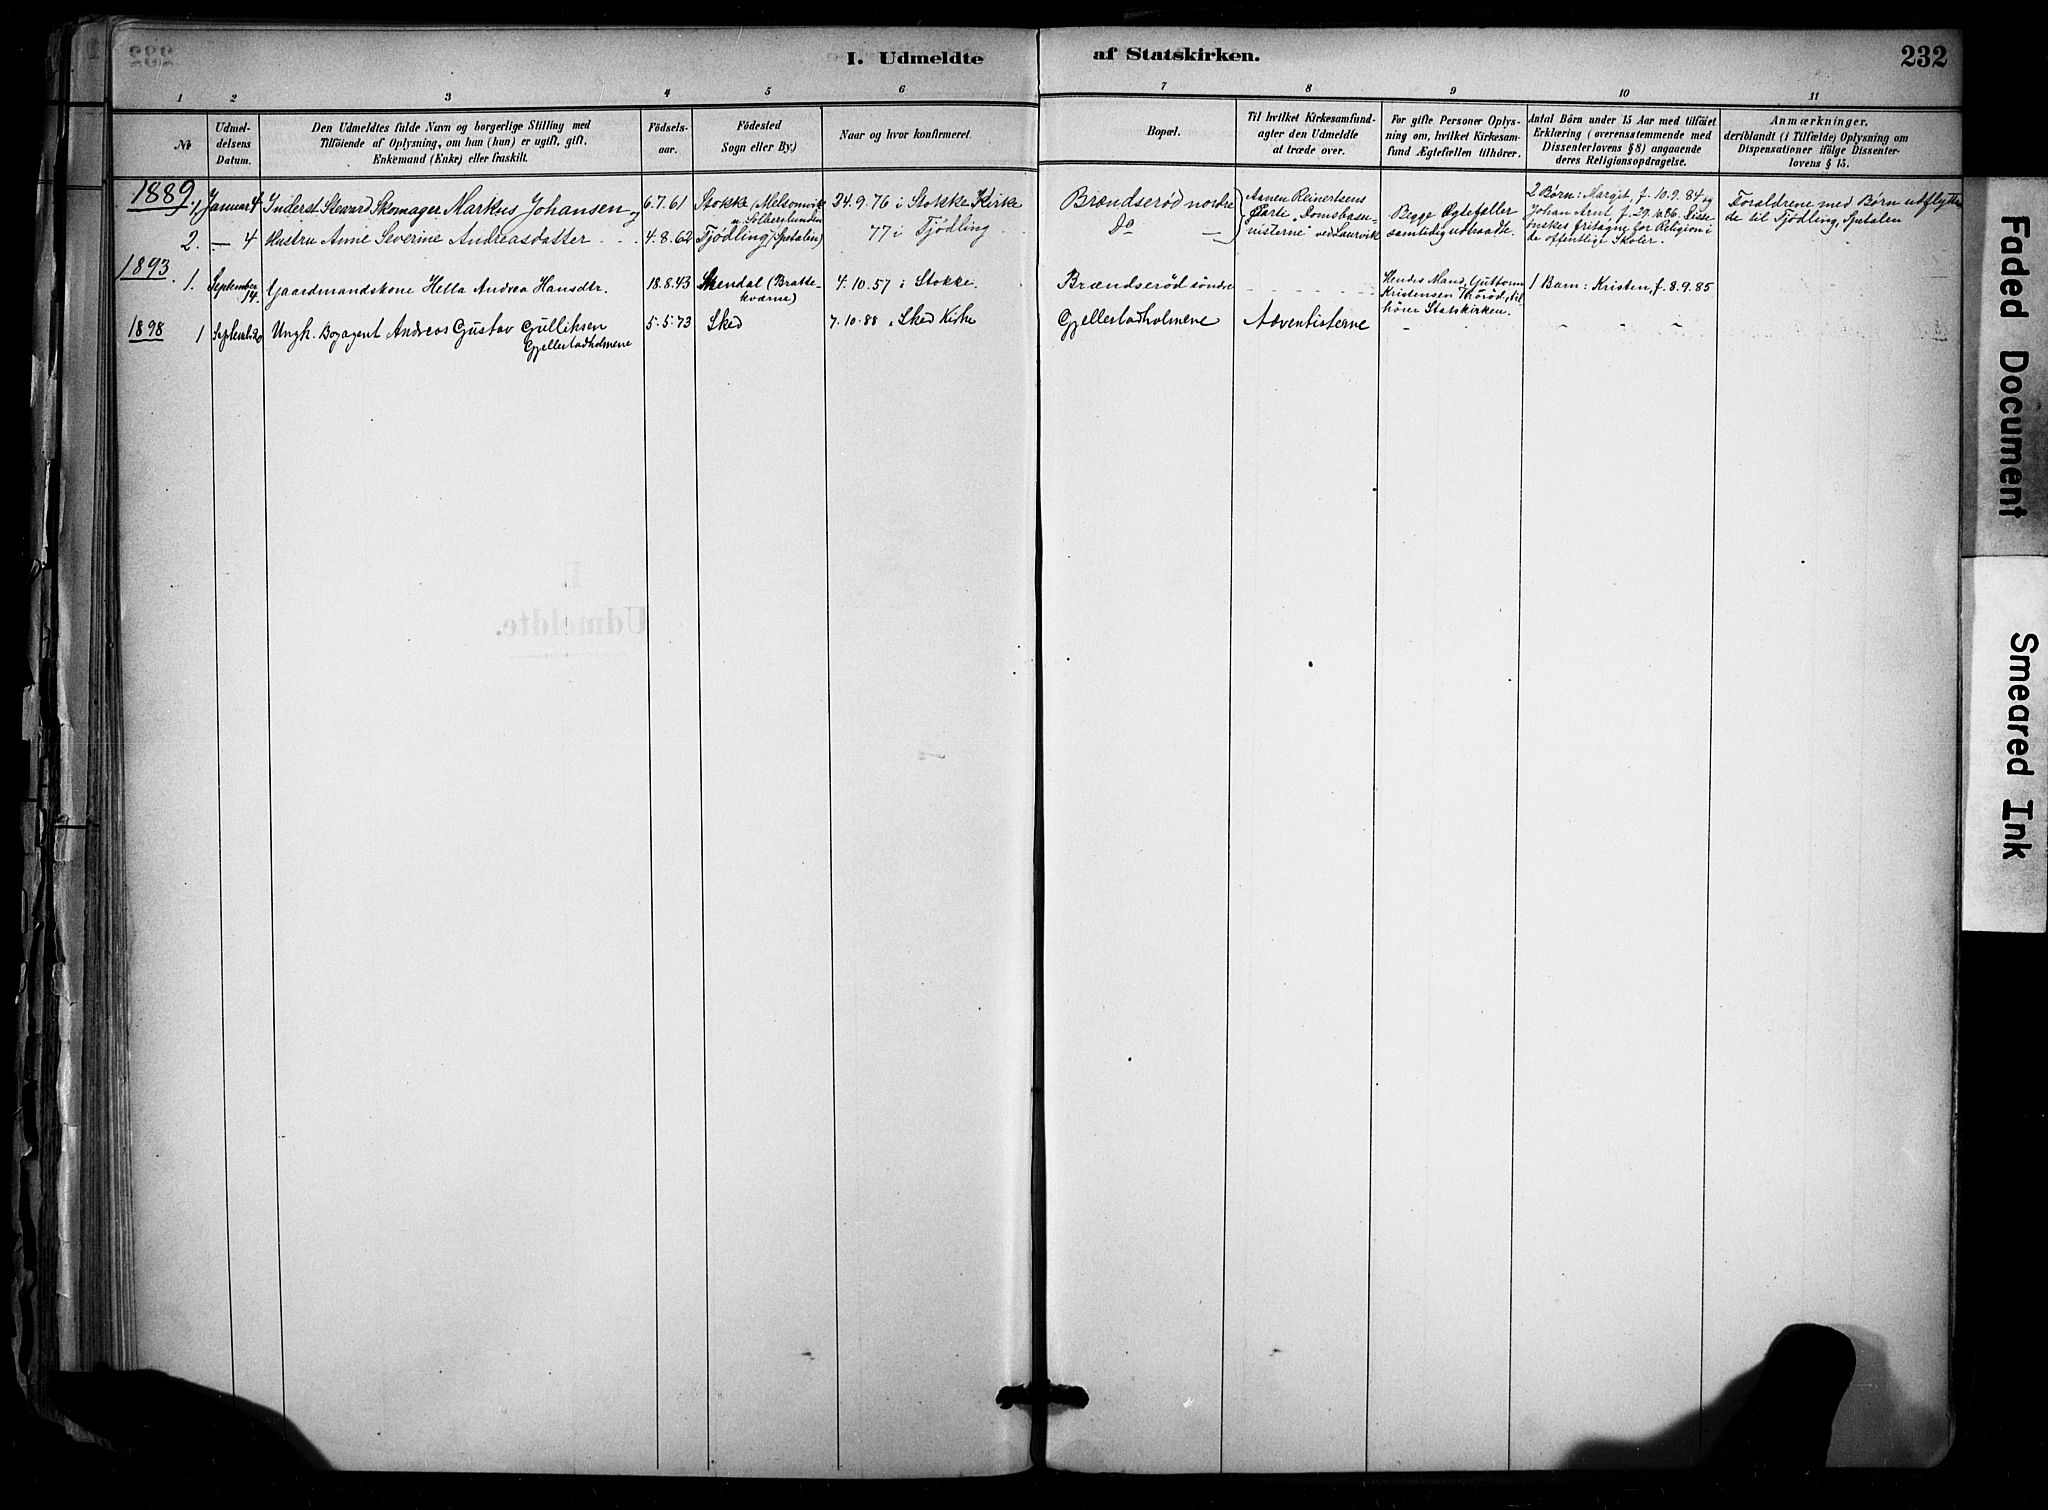 I. Udmeldte af Statskirken. 232
1 2 3 4 5 6 7 8 9 10 11
№
Udmel-
delsens
Datum.
Den Udmeldtes fulde Navn og borgerlige Stilling med
Tilføiende af Oplysning, om han (hun) er ugift, gift,
Enkemand (Enke) eller fraskilt.
Fødsels-
aar.
Fødested
Sogn eller By.)
Naar og hvor konfirmeret.
Bopæl.
Til hvilket Kirkesamfund-
agter den Udmeldte
at træde over.
For gifte Personer Oplys-
ning om, hvilket Kirkesam-
fund Ægtefællen tilhører.
Antal Børn under 15 Aar med tilføiet
Erklæring (overensstemmende med
Dissenterlovens § 8) angaaende
deres Religionsopdragelse.
Anmærkninger,
deriblandt (i Tilfælde) Oplysning om
Dispensationer ifølge Dissenter-
lovens § 15.
1889
1 Januar 4 Inderst Steward Skomager Markus Johansen og
6.7.61
Stokke (Melsomvik
u. Solberglunden
24.9.76 i Stokke Kirke
Brændserød nordre
Parti
"Domsbasu-
nisterne" ved Laurvik
Begge Ægtefæller
samtidig udtraadte.
2 Børn: Margit, f. 10.9.84 og
Johan Arnt, f. 29.10.86. Disse
ønskes fritagne for Religion i
de offentlige Skoler.
Forældrene med Børn udflytte-
de til Tjødling, Spetalen
2. — 4 Hustru Anne Severine Andreasdatter
4.8.62
Tjødling (Spetalen)
77 i Tjødling
Do —
1893
1. September 14. Gaardmandskone Hella Andrea Hansdtr.
18.8.43
(Bratte-
kværna)
4.10.57 i Stokke.
Brændserød søndre
Hendes Mand, Guttorm
Kristensen Thorød, til
hører Statskirken.
1 Barn: Kristen, f. 8.9.85
1898
1 Ungk. Bogagent Andreas Gustav Gulliksen
Gjellestadholmene
5.5.73
Sked
7.10.88 i Sked Kirke
Gjellestadholmene
Adventisterne
I
Udmeldte.
Faded Document
Smeared Ink